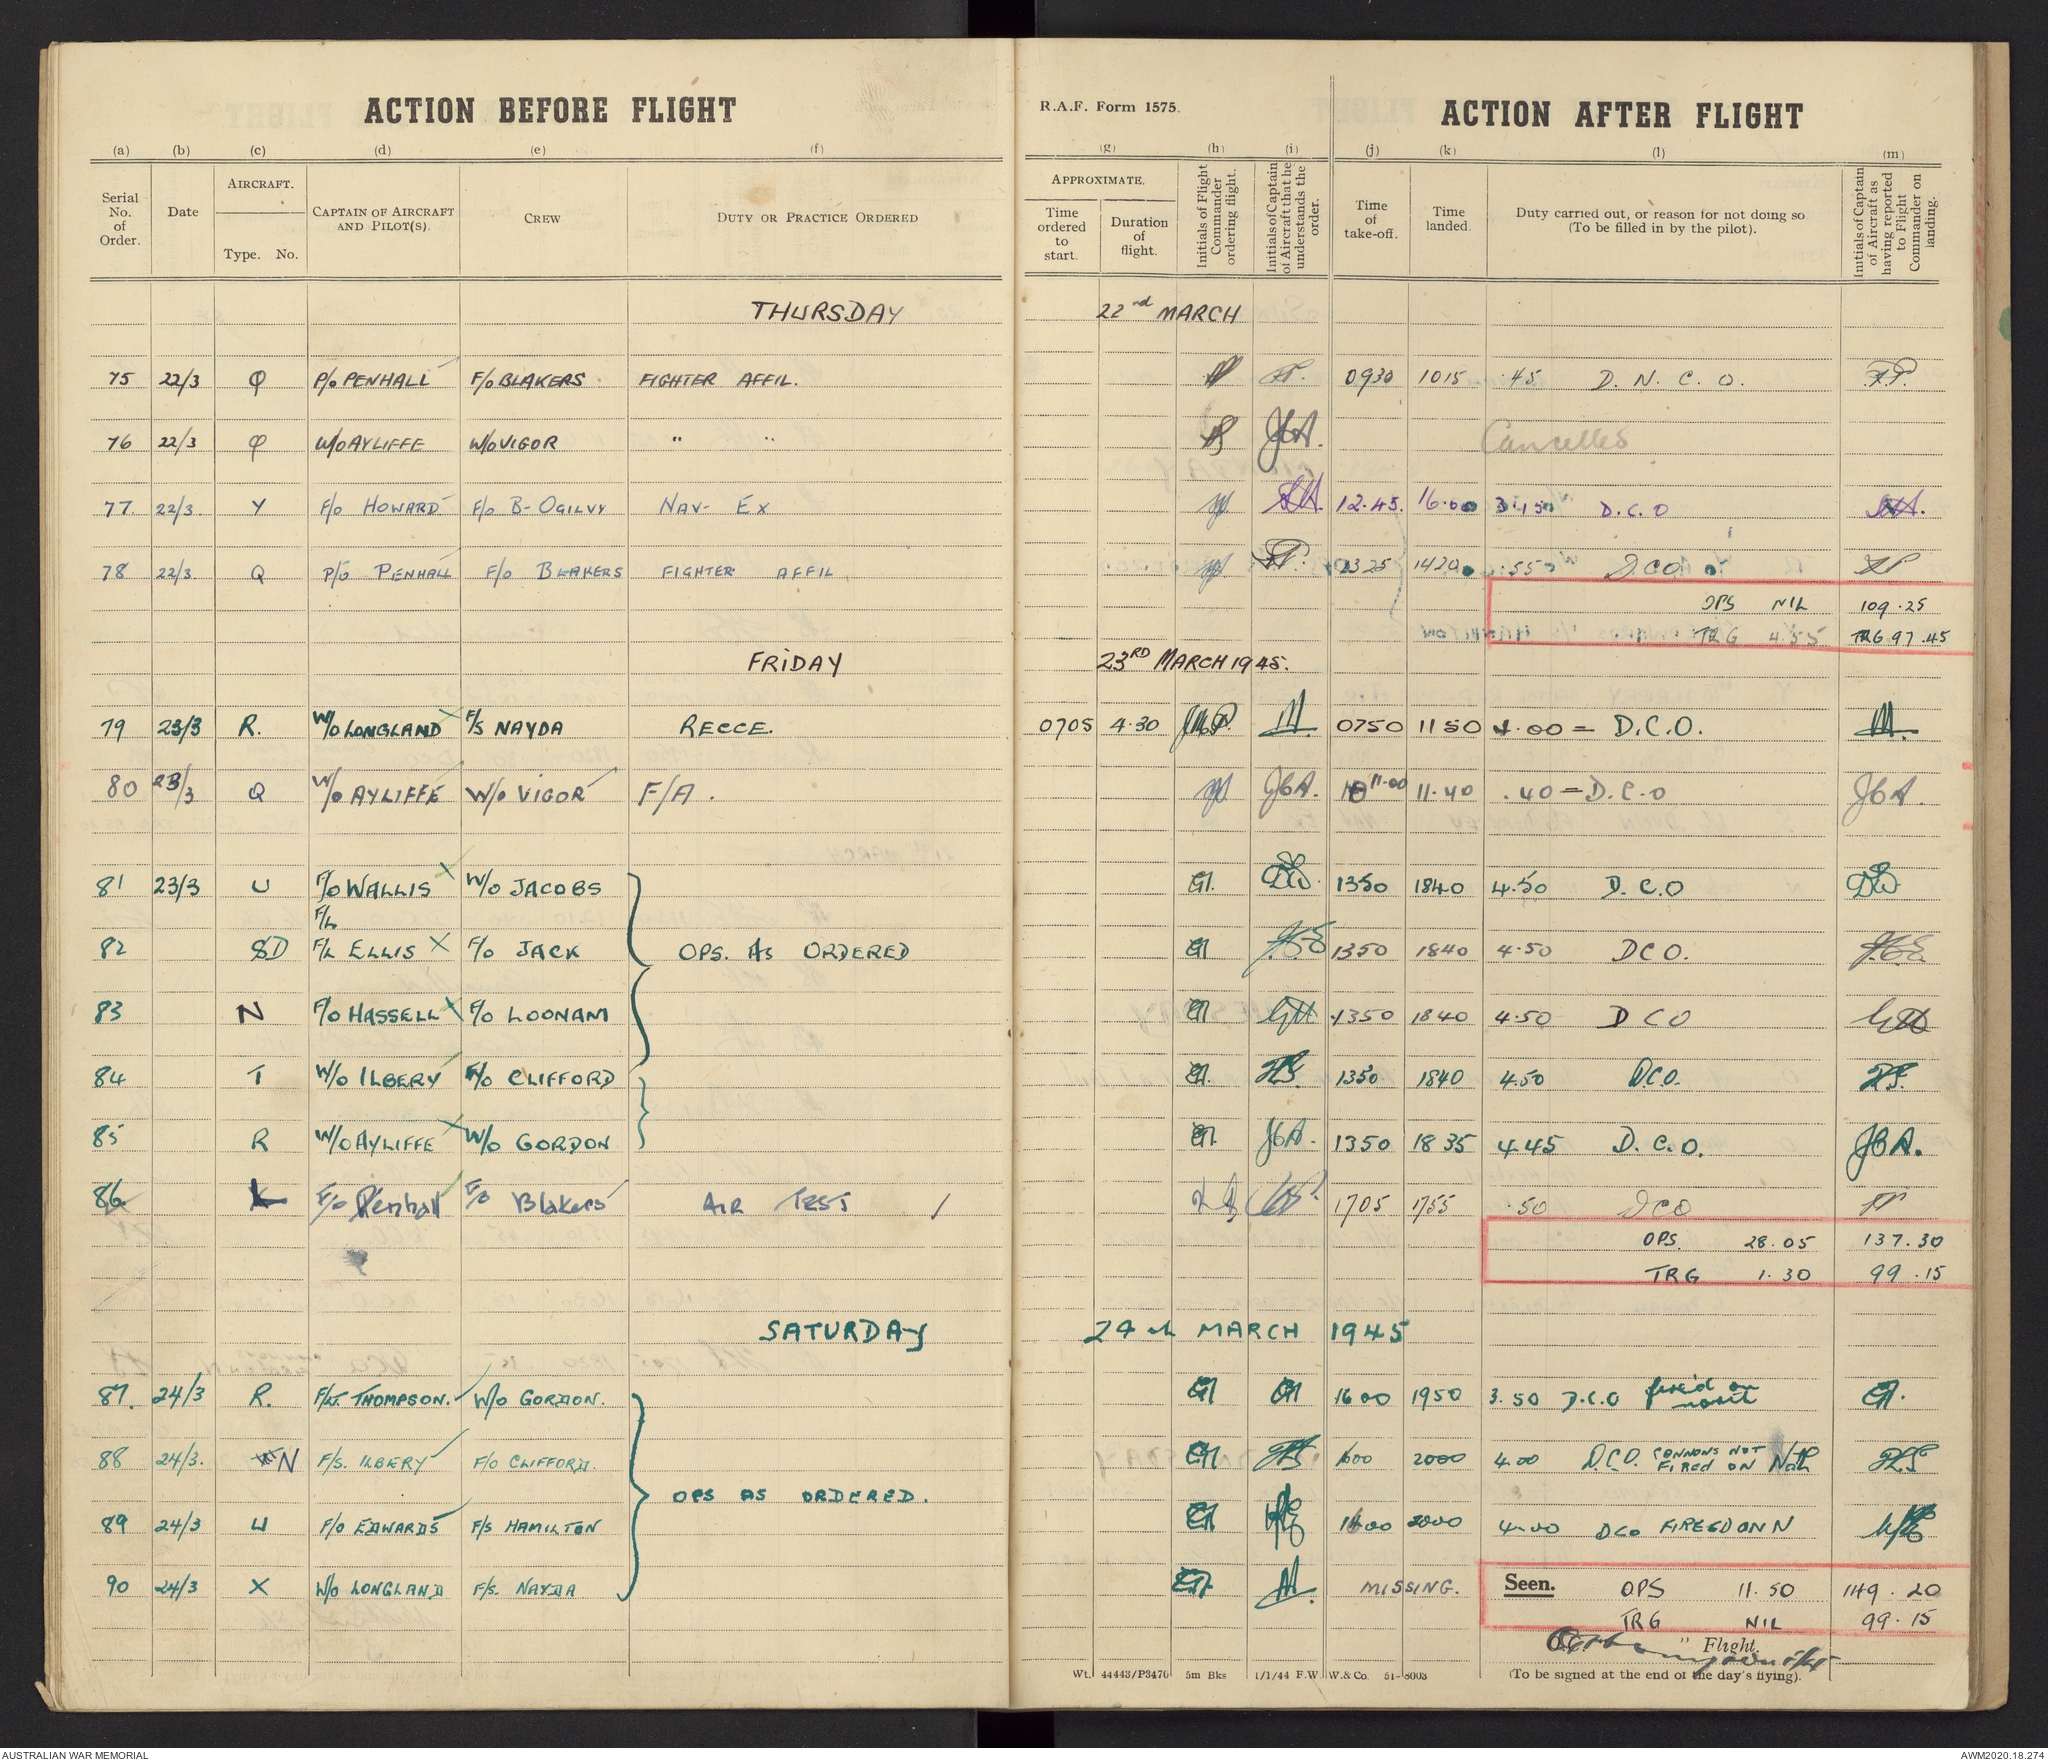 ACTION BEFORE FLIGHT
R.A.F. Form 1575.
ACTION AFTER FLIGHT
(a) (b) (c) (d) (e) (f) (g) (h) (i) (j) (k) (l) (m)
Serial No. of Order.
Date
AIRCRAFT.
Type. No.
CAPTAIN OF AIRCRAFT AND PILOT(S).
CREW
DUTY OR PRACTICE ORDERED
APPROXIMATE.
Time ordered to start.
Duration of flight.
Initials of Flight Commander ordering flight.
Initials of Captain of Aircraft that he understands the order.
Time of take-off.
Time landed.
Duty carried out, or reason for not doing so (To be filled in by the pilot).
Initials of Captain of Aircraft as having reported to Flight Commander on landing.
THURSDAY 22nd MARCH
75 22/3 Q P/O PENHALL F/O BLAKERS FIGHTER AFFIL. 0930 1015 .45 D.N.C.O.
76 22/3 Q W/O AYLIFFE W/O VIGOR " " JCA. Cancelled
77. 22/3. Y F/O HOWARD F/O B-OGILVY NAV- EX 12.45. 16.00 3.15 D.C.O
78 22/3. Q P/O PENHALL F/O BLAKERS FIGHTER AFFIL 1325 1420 .55 DCO
OPS NIL 109.25
TRG 4.55 TRG 97.45
FRIDAY 23RD MARCH 1945.
79 23/3 R. W/O LONGLAND F/S NAYDA RECCE. 0705 4.30 0750 1150 4.00 = D.C.O.
80 23/3 Q W/O AYLIFFE W/O VIGOR F/A. JCA. 11.00 11.40 .40 = D.C.O JCA.
81 23/3 U F/O WALLIS W/O JACOBS 1350 1840 4.50 D.C.O
F/L
82 D F/L ELLIS F/O JACK OPS. AS ORDERED 1350 1840 4.50 DCO.
83 N F/O HASSELL F/O LOONAM 1350 1840 4.50 DCO
84 T W/O ILBERY F/O CLIFFORD 1350 1840 4.50 DCO.
85 R W/O AYLIFFE W/O GORDON JCA. 1350 1835 4.45 D.C.O. JCA.
86 F/O Penhall F/O Blakers AIR TEST 1705 1755 .50 DCO
OPS. 28.05 137.30
TRG 1.30 99.15
SATURDAY 24th MARCH 1945
87. 24/3 R. F/LT. THOMPSON. W/O GORDON. 1600 1950 3.50 D.C.O fired on
88 24/3. N F/S. ILBERY F/O CLIFFORD. 1600 2000 4.00 D.C.O. CANNONS NOT FIRED ON Nth
OPS AS ORDERED.
89 24/3 U F/O EDWARDS F/S HAMILTON 1600 2000 4.00 DCO FIREED ON N
90 24/3 X W/O LONGLAND F/S. NAYDA MISSING.
Seen. OPS 11.50 149.20
TRG NIL 99.15
" Flight.
(To be signed at the end of the day's flying).
Wt. 44443/P3470 5m Bks 1/1/44 F.W. W. & Co. 51-8003
AUSTRALIAN WAR MEMORIAL
AWM2020.18.274